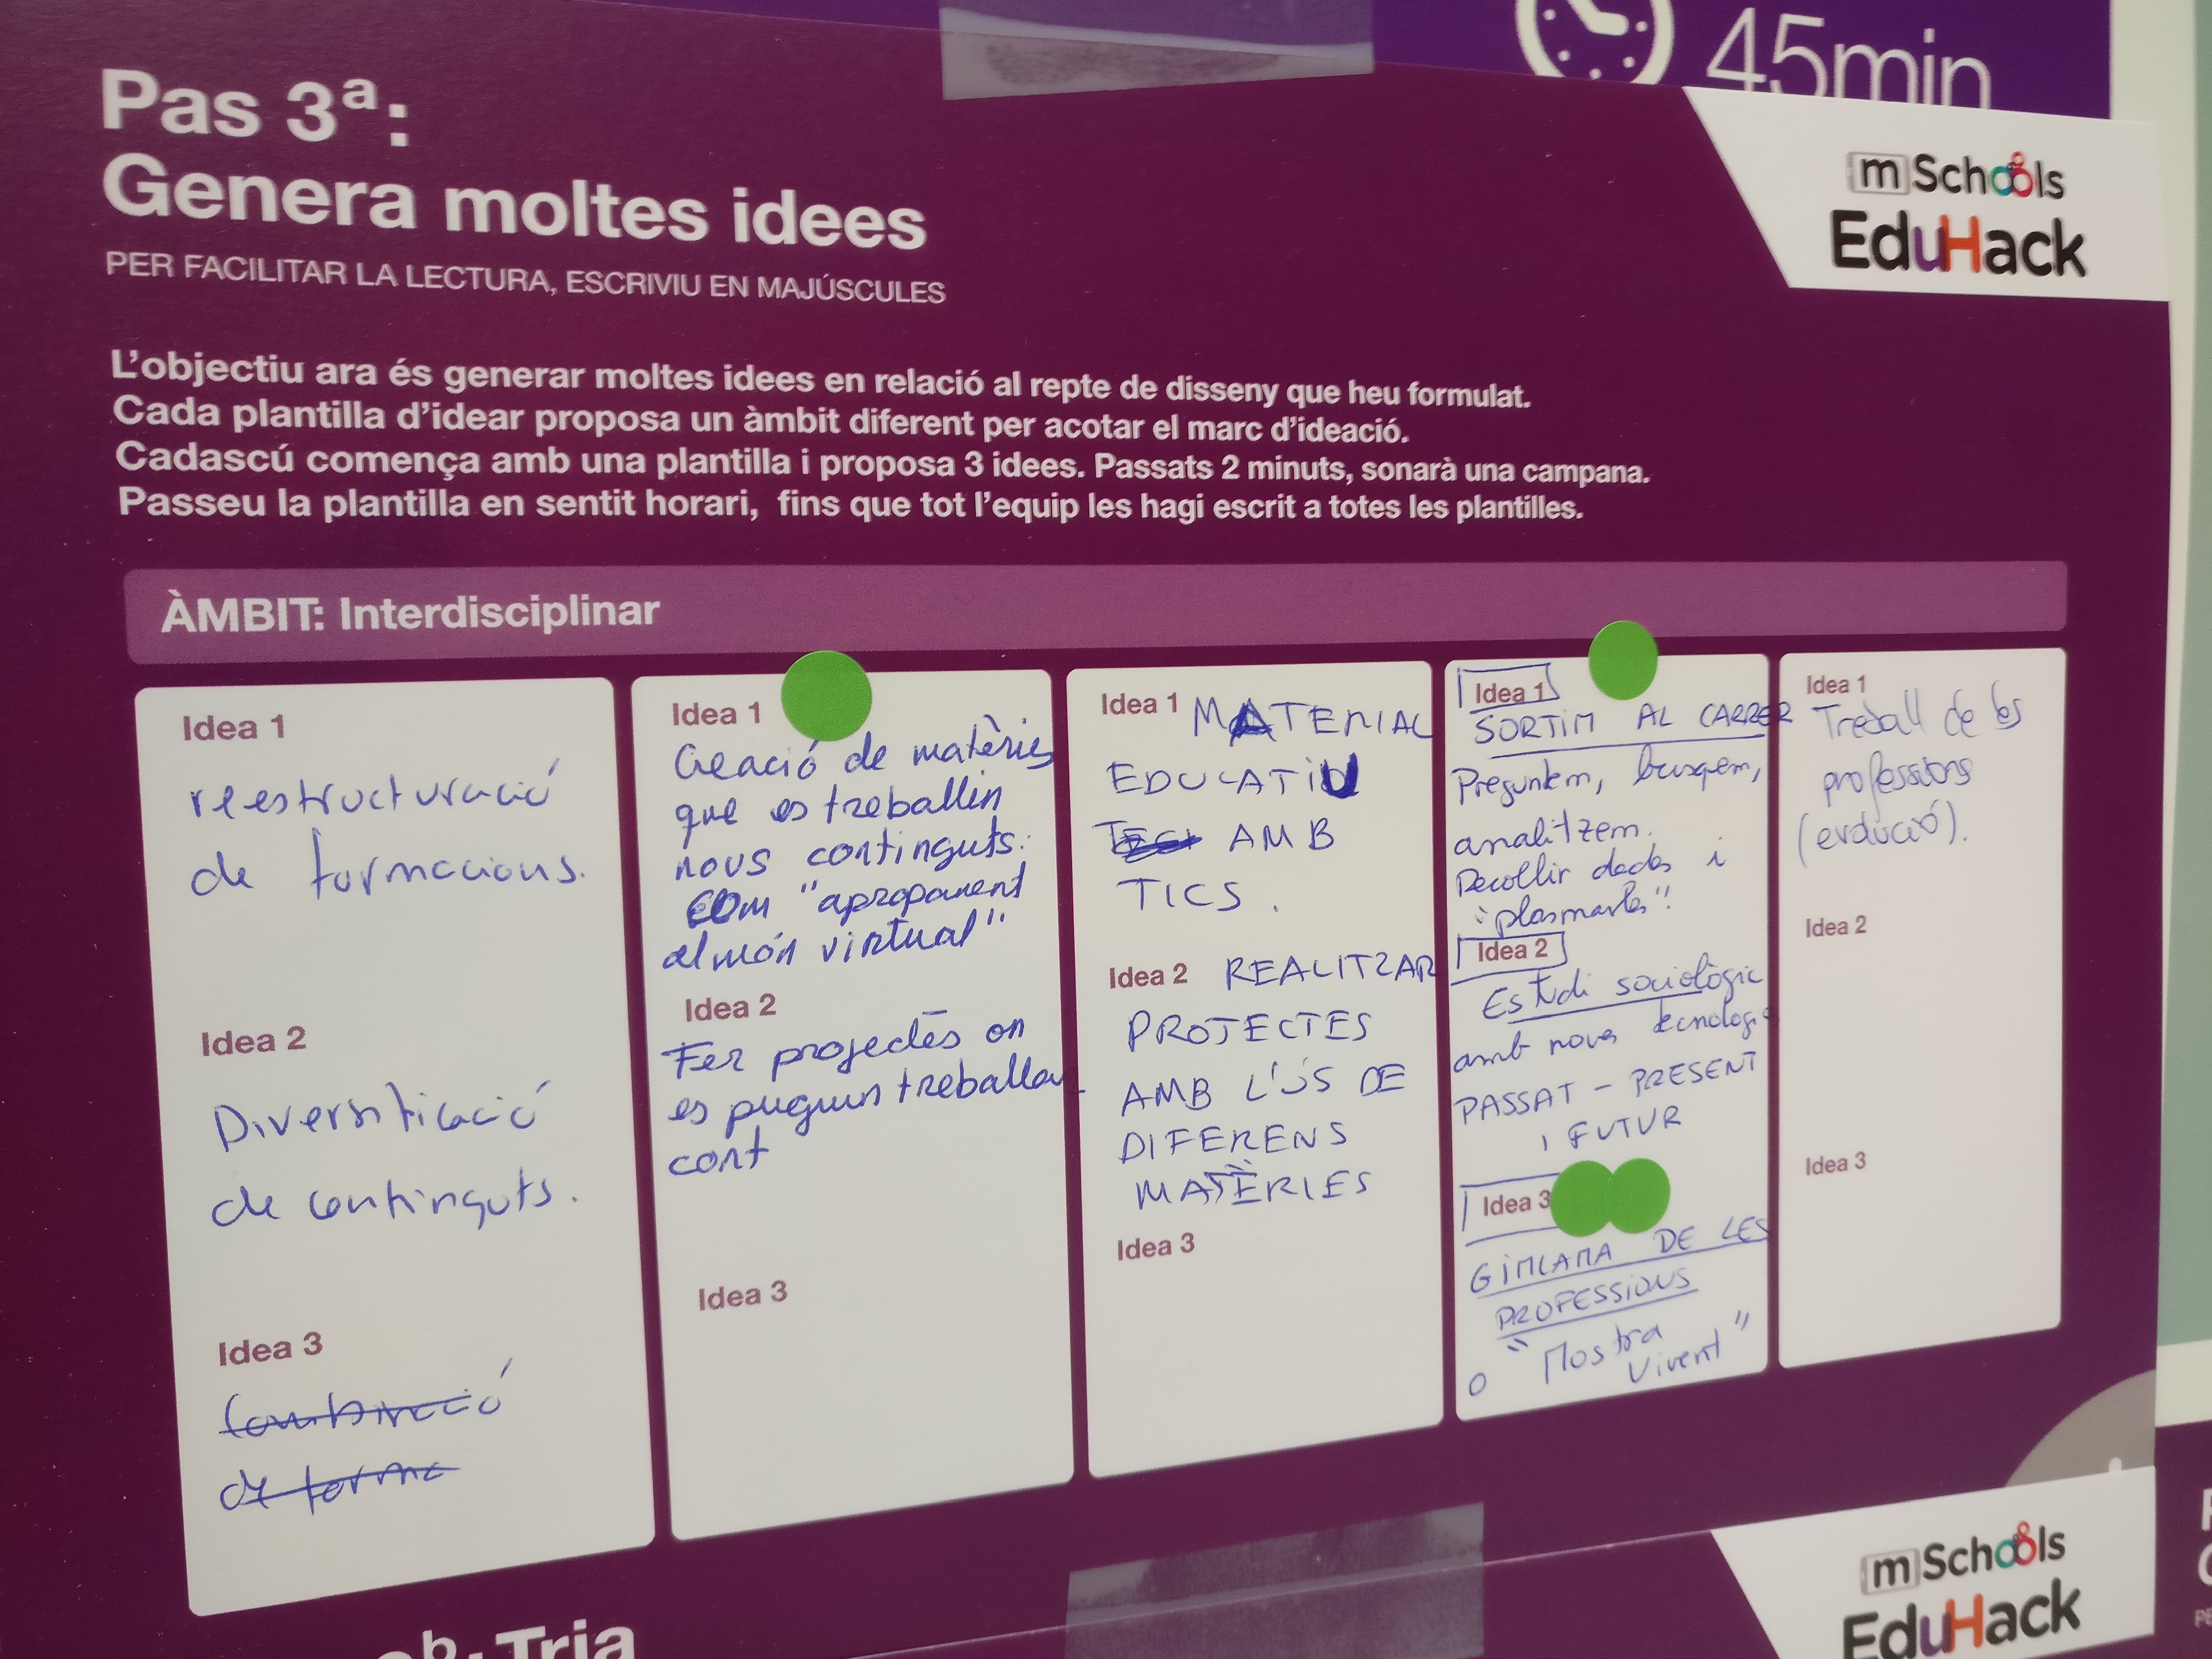 45min
Pas 3ª:
Genera moltes idees
PER FACILITAR LA LECTURA, ESCRIVIU EN MAJÚSCULES
mSchools
EduHack
L'objectiu ara és generar moltes idees en relació al repte de disseny que heu formulat.
Cada plantilla d'idear proposa un àmbit diferent per acotar el marc d'ideació.
Cadascú comença amb una plantilla i proposa 3 idees. Passats 2 minuts, sonarà una campana.
Passeu la plantilla en sentit horari, fins que tot l'equip les hagi escrit a totes les plantilles.
ÀMBIT: Interdisciplinar
Idea 1
reestructuració
de formacions.
Idea 2
Diversificació
de continguts.
Idea 3
Combinació
de forma
Idea 1
Creació de matèries
que es treballin
nous continguts.
com "apropament
al món virtual"
Idea 2
Fer projectes on
es puguin treballar
cont
Idea 3
Idea 1 MATERIAL
EDUCATIU
AMB
TICS.
Idea 2 REALITZAR
PROJECTES
AMB L'ÚS DE
DIFERENS
MATÈRIES
Idea 3
Idea 1
SORTIM AL CARRER
Preguntem, busquem,
analitzem.
Recollir dades i
"plasmarles".
Idea 2
Estudi sociològic
amb noves tecnologi
PASSAT - PRESENT
i FUTUR
Idea 3
GIMCAMA DE LES
PROFESSIONS
o "Mostra
Vivent"
Idea 1
Treball de les
professions
(evolució).
Idea 2
Idea 3
Tria
mSchools
EduHack